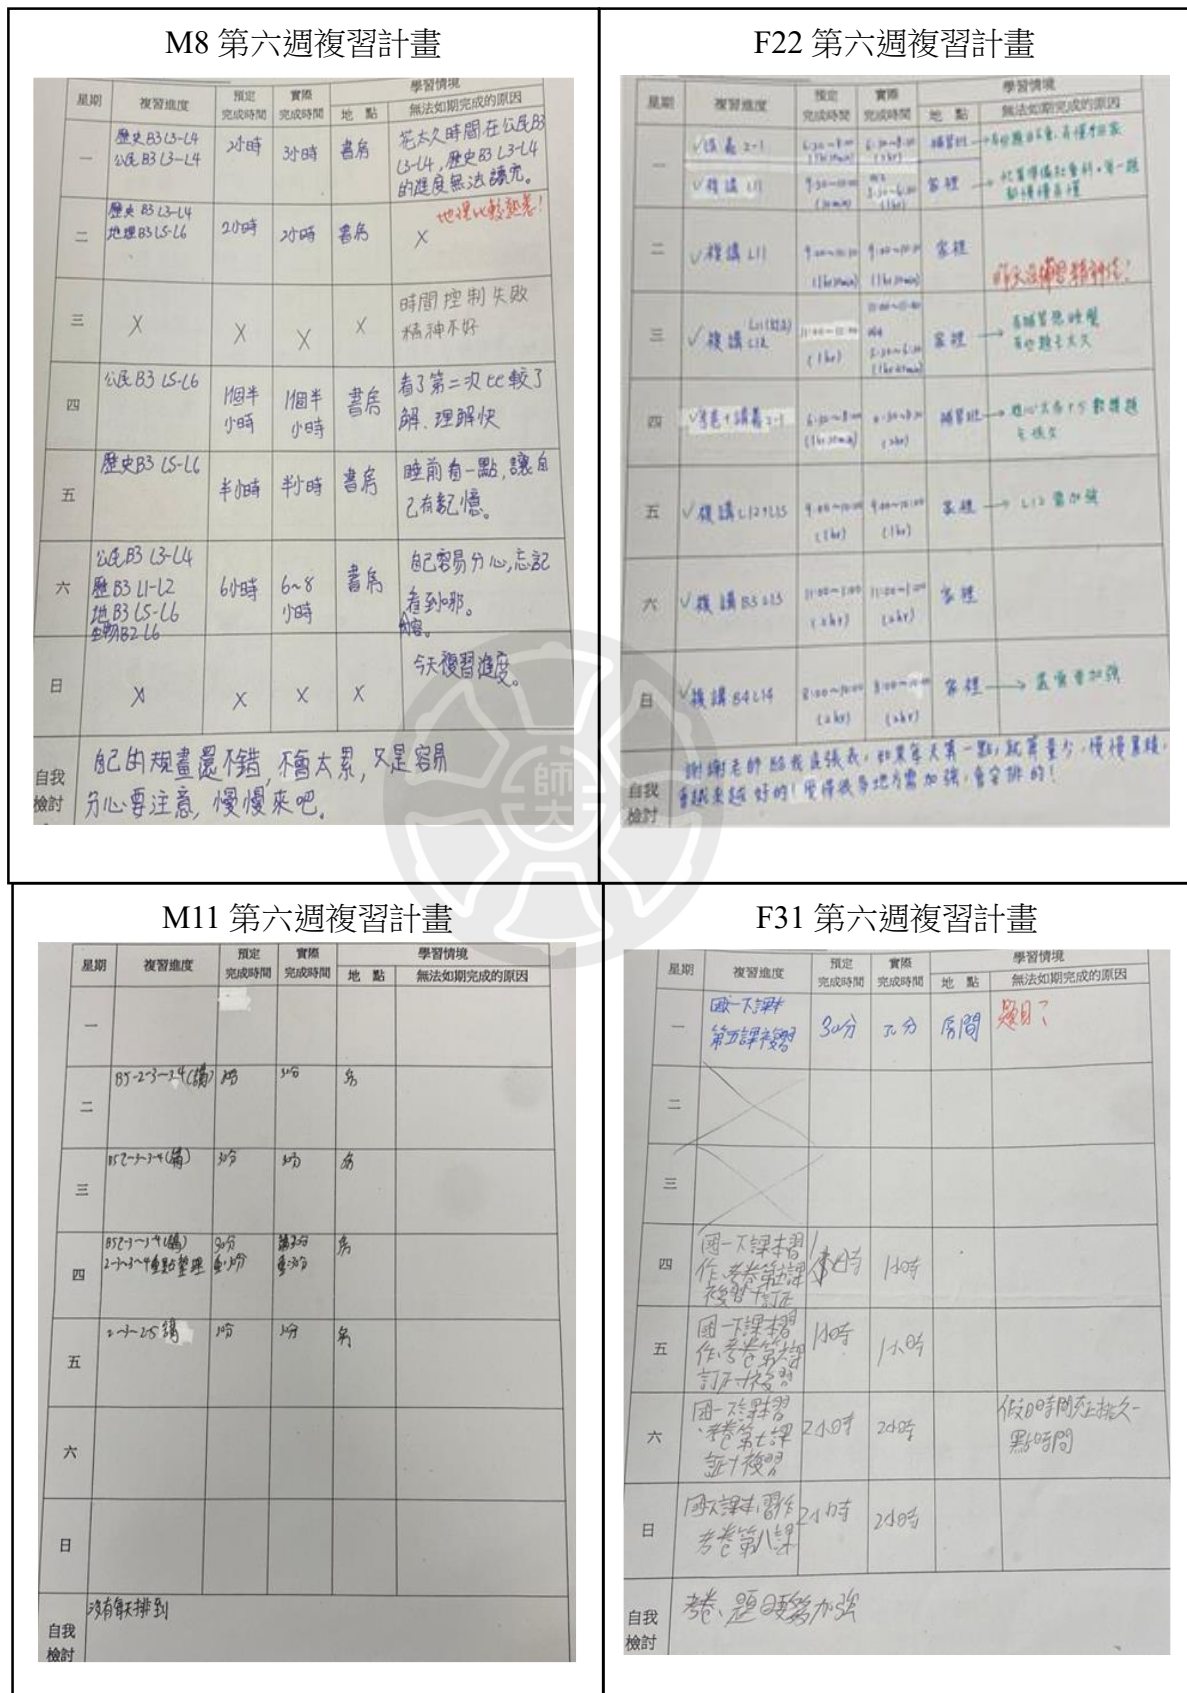 M8 第六週複習計畫
星期
複習進度
預定
完成時間
實際
完成時間
學習情境
地 點
無法如期完成的原因
一
歷史 B3 L3-L4
公民 B3 L3-L4
2小時
3小時
書房
花太久時間在公民B3
L3-L4,歷史B3 L3-L4
的進度無法讀完。
二
歷史 B3 L3-L4
地理 B3 L5-L6
2小時
2小時
書房
X
地理比較熟悉!
三
X
X
X
X
時間控制失敗
精神不好
四
公民 B3 L5-L6
1個半
小時
1個半
小時
書房
看了第二次比較了
解、理解快
五
歷史B3 L5-L6
半小時
半小時
書房
睡前看一點,讓自
己有記憶。
六
公民B3 L3-L4
歷 B3 L1-L2
地 B3 L5-L6
生物B2 L6
6小時
6~8
小時
書房
自己容易分心,忘記
看到哪。
內容。
日
X
X
X
X
今天複習進度。
自我
檢討
自己的規畫還不錯,不會太累,又是容易
分心要注意,慢慢來吧。
F22 第六週複習計畫
星期
複習進度
預定
完成時間
實際
完成時間
學習情境
地 點
無法如期完成的原因
一
✓講義 2-1
6:30~8:00
(1hr30min)
補習班
✓複講 L11
9:30~10:00
(30min)
家裡
二
✓複講 L11
9:00~10:30
(1hr30min)
9:00~10:30
(1hr30min)
家裡
昨天沒補習精神佳!
三
✓複講
L12
11:00~12:00
(1hr)
家裡
四
6:30~8:00
(1hr30min)
6:30~8:30
(2hr)
補習班
五
✓複講 L12+L13
9:00~10:00
(1hr)
9:00~10:00
(1hr)
家裡
→ L12 需加強
六
✓複講 B3 L13
11:00~1:00
(2hr)
11:00~1:00
(2hr)
家裡
日
✓複講 B4 L14
8:00~10:00
(2hr)
8:00~10:00
(2hr)
家裡
自我
檢討
謝謝老師給我這張表,如果每天算一點,就算量少,慢慢累積,
會越來越好的!覺得很多地方需加強,會安排的!
師大
M11 第六週複習計畫
星期
複習進度
預定
完成時間
實際
完成時間
學習情境
地 點
無法如期完成的原因
一
二
B5-2-3~3-4(講)
30分
30分
房
三
B5 2-3~3-4(講)
30分
30分
房
四
B5 2-3~3-4(講)
2-3~3-4重點整理
30分
重:30分
講30分
重:30分
房
五
2-3~2-5 講
30分
30分
房
六
日
自我
檢討
沒有每天排到
F31 第六週複習計畫
星期
複習進度
預定
完成時間
實際
完成時間
學習情境
地 點
無法如期完成的原因
一
國一下課本
第五課複習
30分
30分
房間
題目?
二
三
四
國一下課本習
作、考卷第五課
複習+訂正
1小時
1小時
五
國一下課本習
作、考卷第六課
訂正+複習
1小時
1小時
六
國一下課本習
、考卷第七課
訂正+複習
2小時
2小時
點時間
日
國一下課本、習作
考卷第八課
2小時
2小時
自我
檢討
考卷、題目要多加強